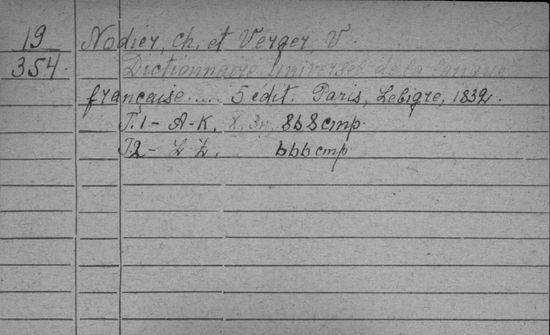 19 Nodier, Ch. et Verger, V.
354. Dictionnaire universel de la langue
française..... 5 edit. Paris, Lebigre, 1832.
T.1 - A-K, 868 cmp.
T.2 - L-Z, 666 cmp.